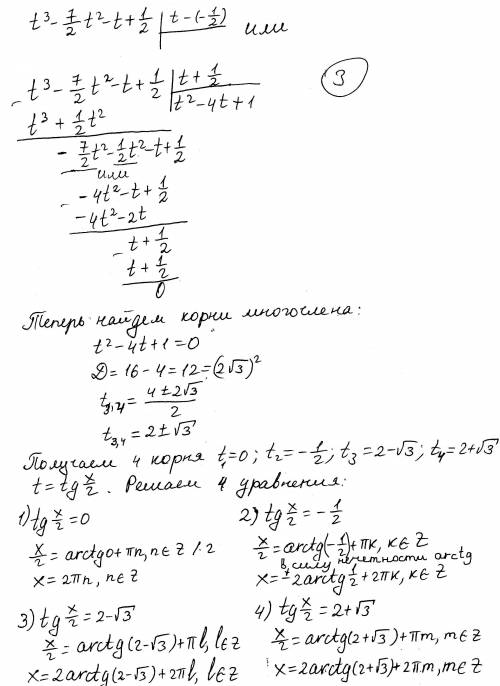 t³ - 7/2 t² - t + 1/2 | t - (-1/2) или
t³ - 7/2 t² - t + 1/2 | t + 1/2
3
t³ + 1/2 t²
t² - 4t + 1
- 7/2 t² - 1/2 t² - t + 1/2
или
- 4t² - t + 1/2
- 4t² - 2t
t + 1/2
t + 1/2
0
Теперь найдем корни многочлена:
t² - 4t + 1 = 0
D = 16 - 4 = 12 = (2√3)²
t₃,₄ = (4 ± 2√3)/2
t₃,₄ = 2 ± √3
Получаем 4 корня t₁ = 0; t₂ = -1/2; t₃ = 2-√3; t₄ = 2+√3
t = tg x/2. Решаем 4 уравнения:
1) tg x/2 = 0
x/2 = arctg 0 + πn, n ∈ Z /·2
x = 2πn, n ∈ Z
2) tg x/2 = -1/2
x/2 = arctg(-1/2) + πk, k ∈ Z
в силу нечетности arctg
x = ±2arctg 1/2 + 2πk, k ∈ Z
3) tg x/2 = 2-√3
x/2 = arctg(2-√3) + πl, l ∈ Z
x = 2arctg(2-√3) + 2πl, l ∈ Z
4) tg x/2 = 2+√3
x/2 = arctg(2+√3) + πm, m ∈ Z
x = 2arctg(2+√3) + 2πm, m ∈ Z